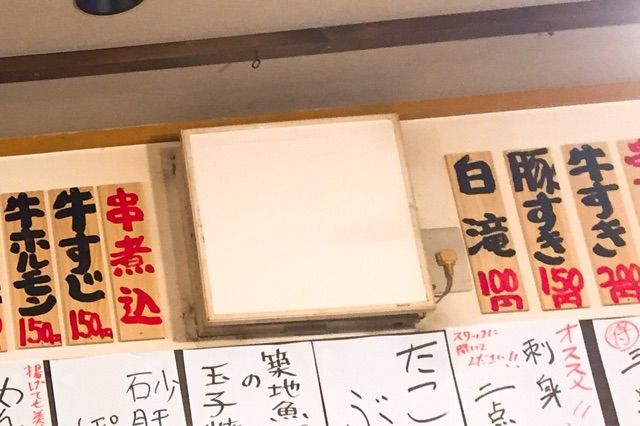 串煮込
牛すじ
150円
牛ホルモン
150円
牛すき
200円
豚すき
150円
白滝
100円
オススメ!!
刺身
二点
スタッフに
聞いてください!!
たこ
ぶ
築地魚
の
玉子焼
砂肝
揚げても美